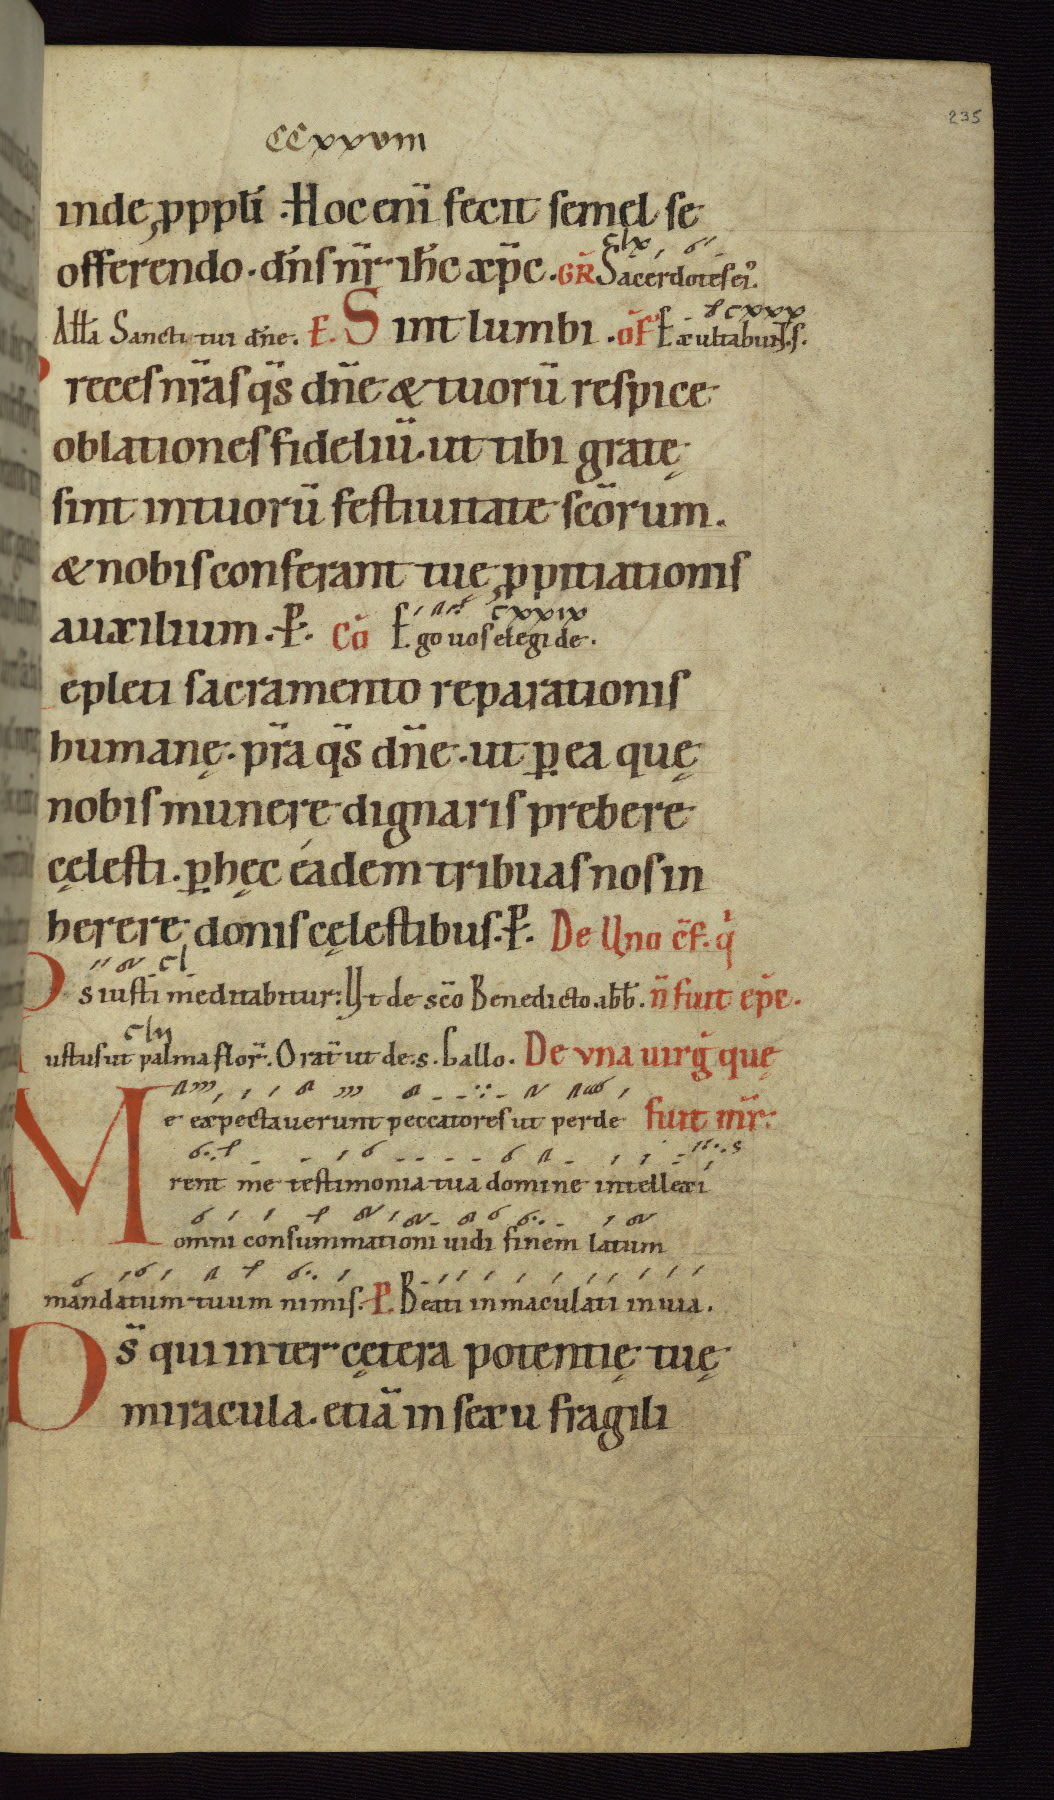 235
CCxxvııı
inde, p̱ppl̄i. Hoc eni̅ fecit semel se
offerendo. dn̄s nr̄ ih̄c xp̄c. GR̄ Sacerdotes ei᷒. clx
All̄a Sancti tui dn̄e. E. Sint lumbi. of̄ Exultabun̄t. s. cxxx
Preces nr̄as qs̄ dn̄e & tuorū respice
oblationes fideliū. ut tibi gratę
sint in tuorū festiuitate scōrum.
& nobis conferant tuę ꝓpitiationis
auxilium. P. Cō Ego uos elegi de. cxxix
epleti sacramento reparationis
humanę. pr̄a qs̄ dn̄e. ut ꝑ ea quę
nobis munere dignaris prebere
cęlesti. ꝑ hęc éadem tribuas nos in
herere donis cęlestibus. P. De Uno cf̄. q̇
Os iusti meditabitur: Ut de scō Benedicto abb̄. n̄ fuit ep̄c. cl
Iustus ut palma flor̄. Orat̄ ut de. s. Gallo. De vna uirḡ quę clıı
Me expectaverunt peccatores ut perde fuit mr̄:
rent me testimonia tua domine intellexi
omni consummationi uidi finem latum
mandatum tuum nimis. P. Beati inmaculati in uia.
Ds̄ qui inter cętera potentię tuę
miracula. etiā in sexu fragili